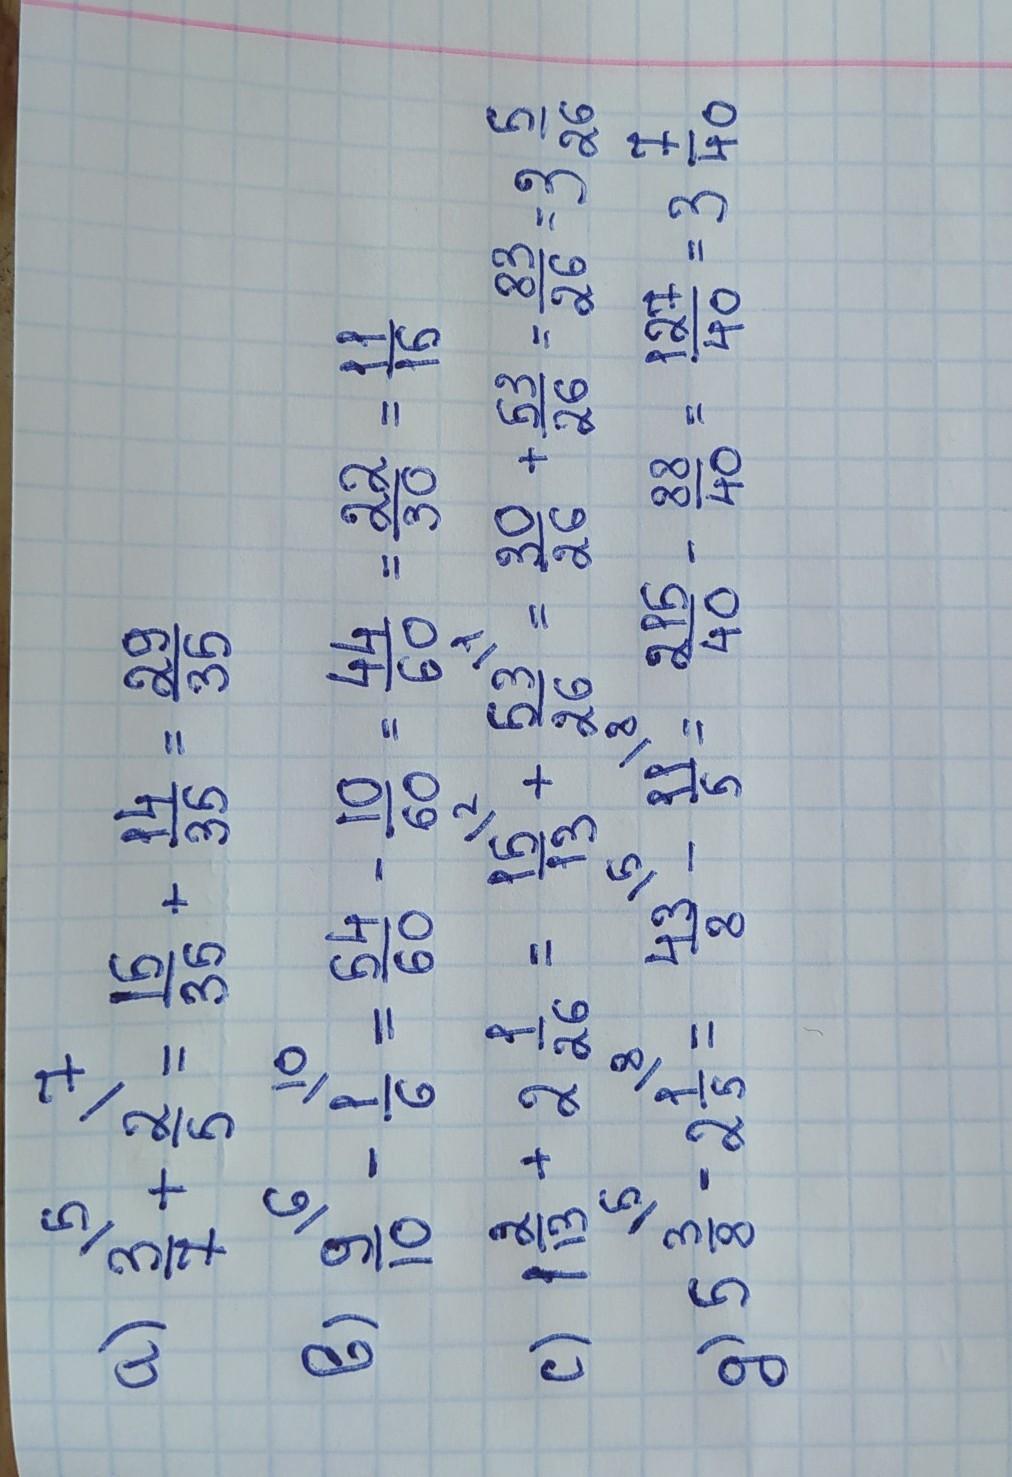 a) 3/7 \5 + 2/5 \7 = 15/35 + 14/35 = 29/35
b) 9/10 \6 - 1/6 \10 = 54/60 - 10/60 = 44/60 = 22/30 = 11/15
c) 1 2/13 + 2 1/26 = 15/13 \2 + 53/26 \1 = 30/26 + 53/26 = 83/26 = 3 5/26
g) 5 3/8 \5 - 2 1/5 \8 = 43/8 \5 - 11/5 \8 = 215/40 - 88/40 = 127/40 = 3 7/40